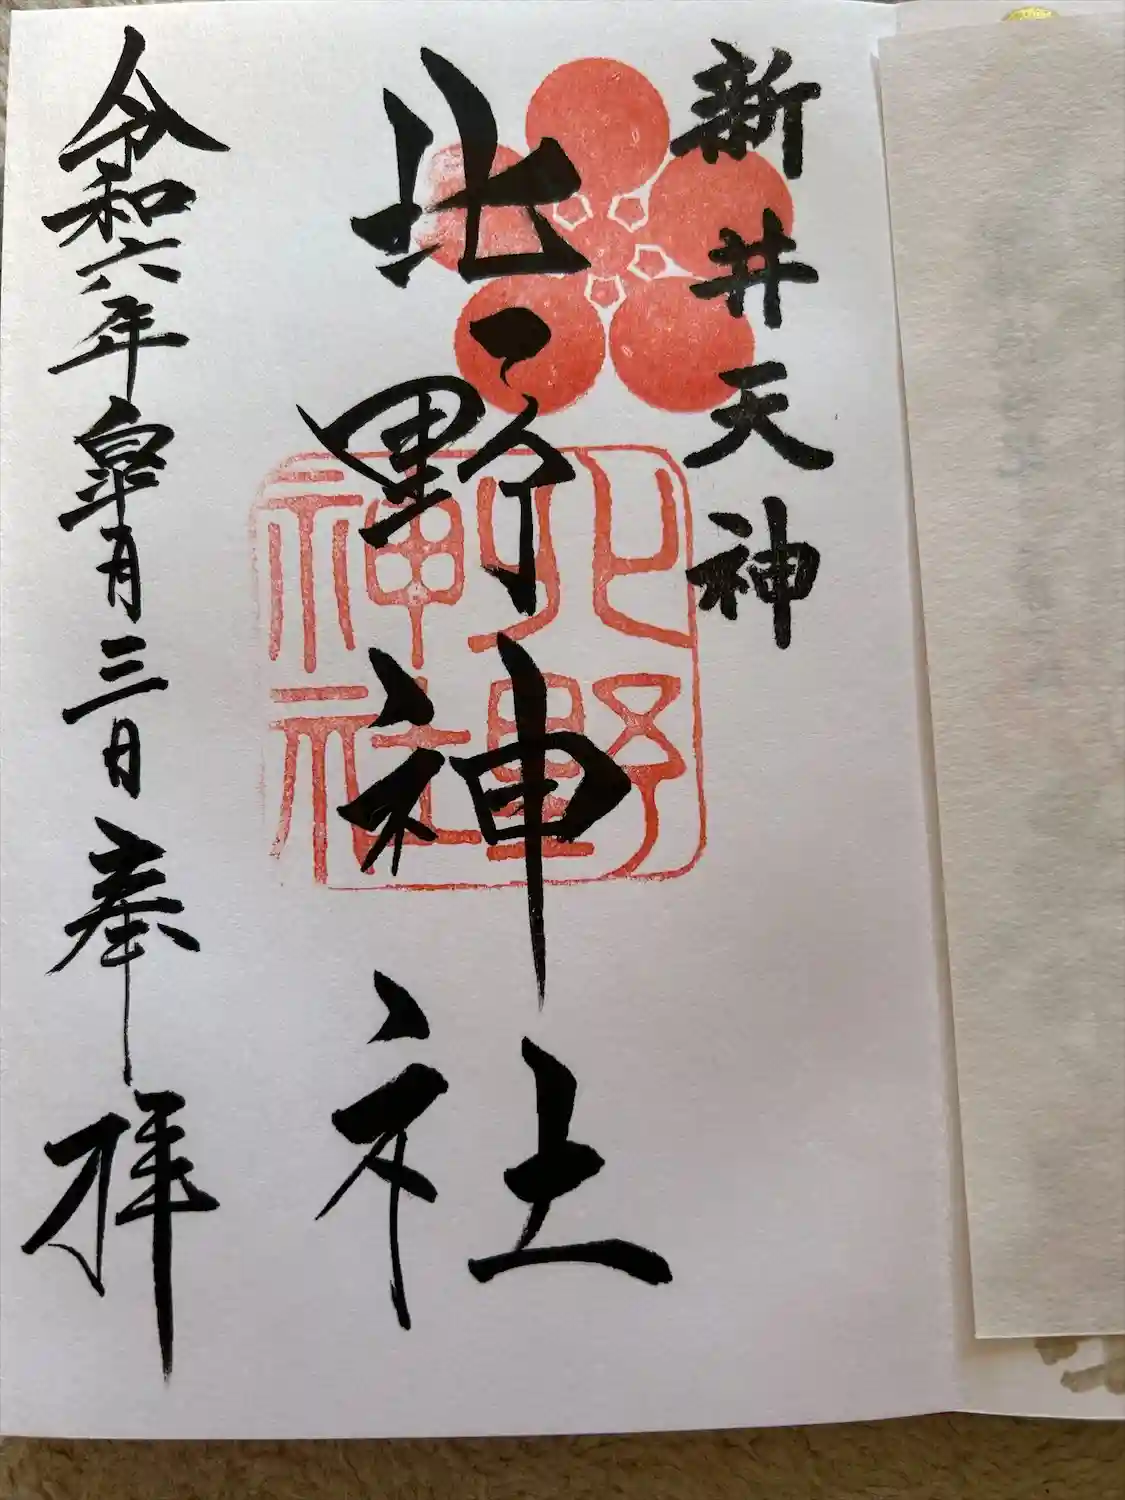 新井天神
北野神社
北野神社
令和六年皐月三日奉拝